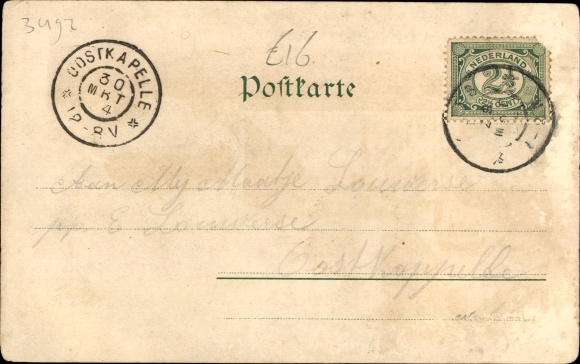 3492
£16
OOSTKAPELLE
30
MRT
4
6-8V
Postkarte
NEDERLAND
2½
2½ CENT
Aan Mej Maatje Louwerse
pp. E Louwerse
Oostkappelle